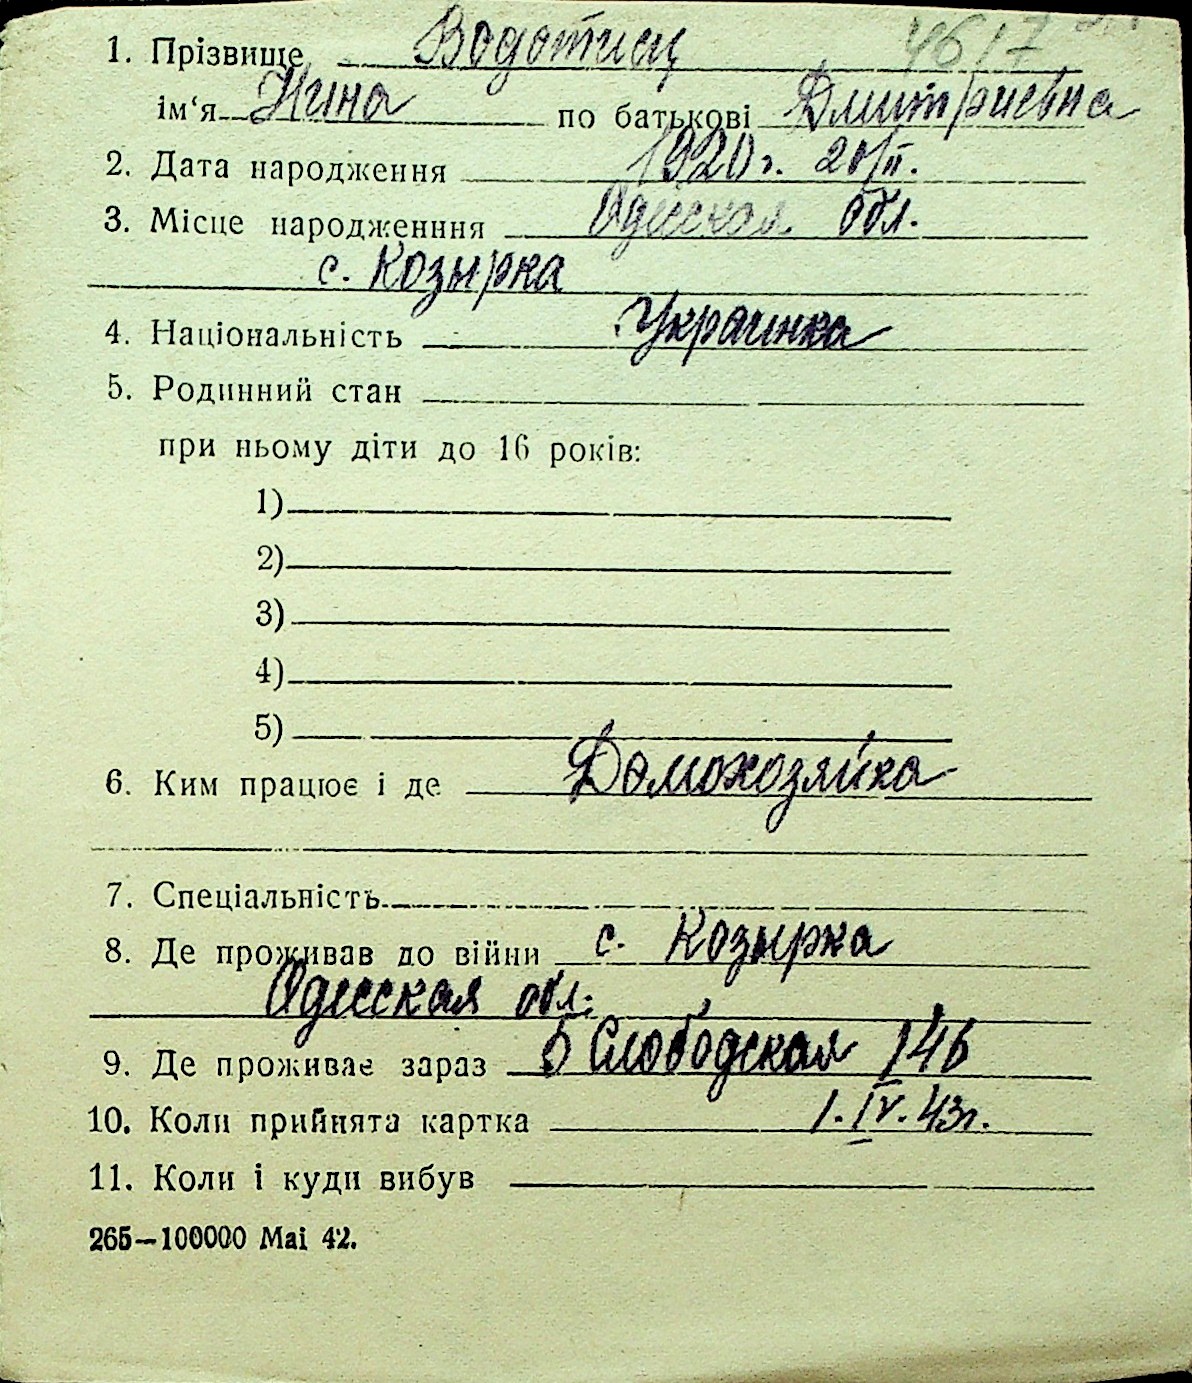 1. Прізвище Водотиец 4617
ім‘я Нина по батькові Дмитриевна
2. Дата народження 1920 г. 20/II.
3. Місце народженння Одесская обл.
с. Козырка
4. Національність Украинка
5. Родинний стан
при ньому діти до 16 років:
1)
2)
3)
4)
5)
6. Ким працює і де Домохозяйка
7. Спеціальність
8. Де проживав до війни с. Козырка
Одесская обл.
9. Де проживає зараз Слободская 146
10. Коли прийнята картка 1.IV.43г.
11. Коли і куди вибув
265—100000 Маі 42.